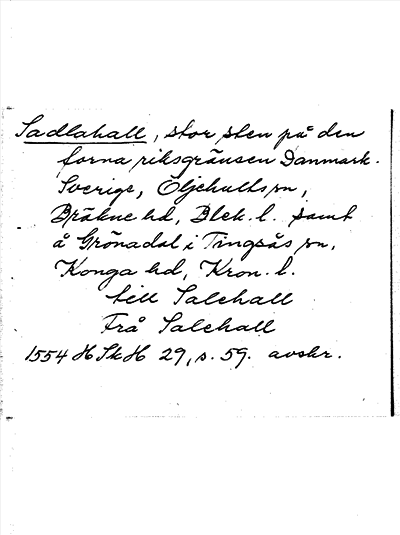 Sadlahall, stor sten på den
forna riksgränsen Danmark-
Sverige, Öljehults sn,
Bräkne hd, Blek. l. samt
å Grönadal i Tingsås sn,
Konga hd, Kron. l.
till Salehall
Frå Salehall
1554 HSkH 29, s. 59. avskr.